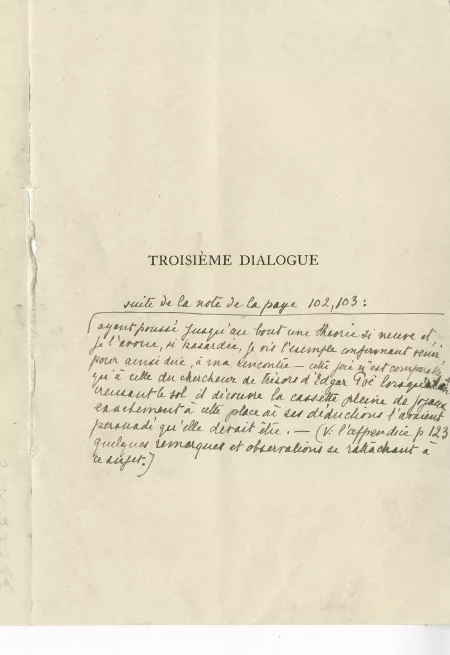 TROISIÈME DIALOGUE
suite de la note de la page 102, 103 :
ayant poussé jusqu'au bout une théorie si neuve et,
je l'avoue, si hasardée, je vis l'exemple confirmant venir
pour ainsi dire, à ma rencontre — cette joie n'est comparable
qu'à celle du chercheur de trésors d'Edgar Poë lorsque
creusant le sol il découvre la cassette pleine de joyaux
exactement à cette place où ses déductions l'avaient
persuadé qu'elle devait être. — (V. l'appendice p 123
quelques remarques et observations se rattachant à
ce sujet.)